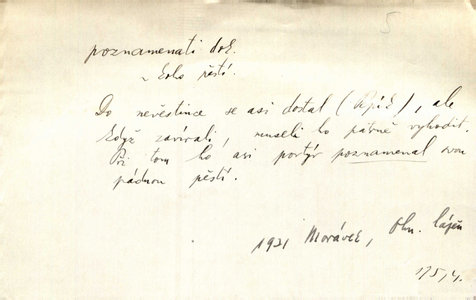 5
poznamenati dok.
~ koho pěstí.
Do nevěstince se asi dostal (Rjúk), ale
když zavírali, museli ho pátně vyhodit.
Při tom ho asi portýr poznamenal svou
pádnou pěstí.
1921 Morávek, Ohn.
175,4.